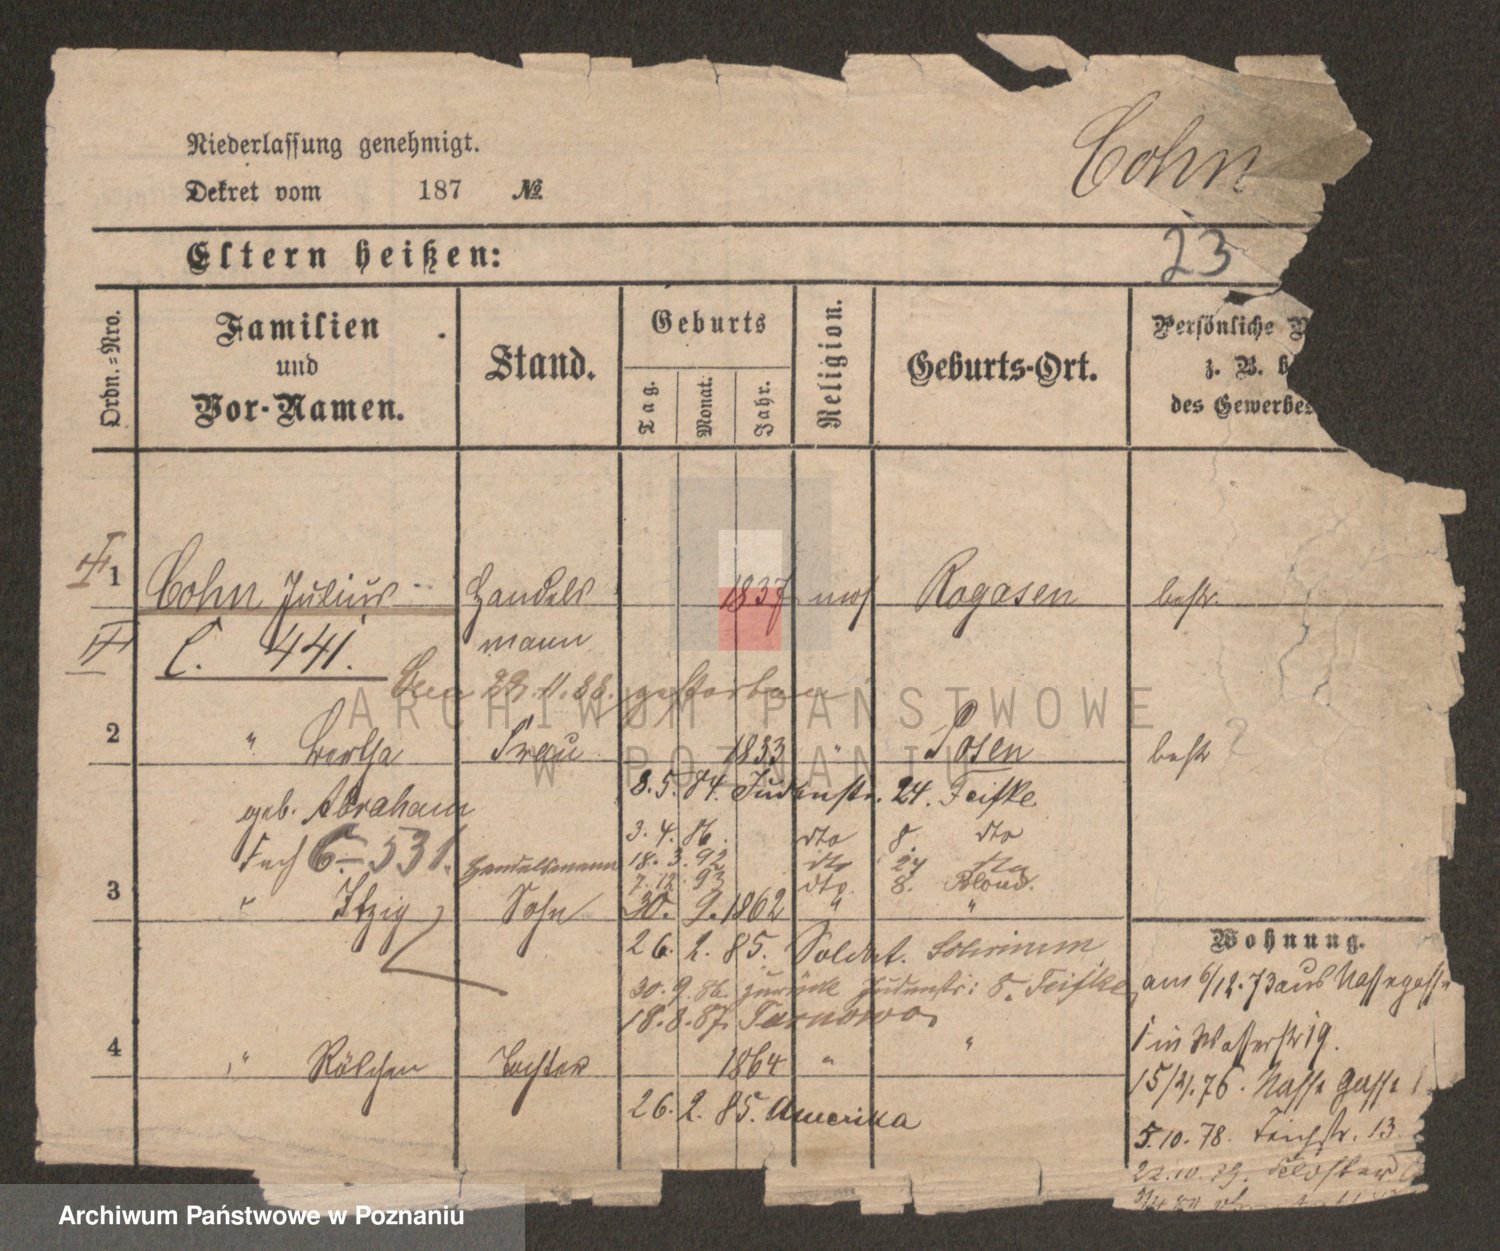 Niederlassung genehmigt.
Dekret vom 187 №
Cohn
23
Eltern heißen:
Ordn.-Nro.
Familien
und
Vor-Namen.
Stand.
Geburts
Tag.
Monat.
Jahr.
Religion.
Geburts-Ort.
Persönliche
z. B. b
des Gewerbes
1 Cohn Julius Handels 1837 mos Rogasen bestr.
C. 441. mann
Den 22.11.88. gestorben
2 " Bertha Frau 1833 " Posen bestr
8. 5. 84. Judenstr. 24. Feifke.
geb. Abraham
3. 4. 86. dto 8. dto
Fach C. 531. Handelsmann 18. 3. 92 dto 27 dto
7. 12. 93 dto. 8.
3 " Itzig Sohn 30. 9. 1862 " "
26. 2. 85. Soldat. Schrimm
30. 9. 86. zurück Judenstr: 8. Feifke
18. 8. 87. Tarnowo
4 " Röschen Tochter 1864 " "
26. 2. 85. Amerika
Wohnung.
am 6/12. 73 aus Nassegasse
1 in Wasserstr 19.
15/4. 76. Nasse Gasse 1
5.10. 78. Teichstr. 13
22.10. 79.
ARCHIWUM PAŃSTWOWE
W POZNANIU
Archiwum Państwowe w Poznaniu